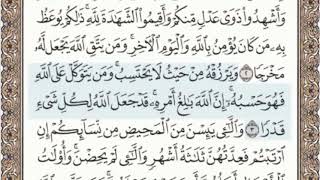 وَأَشْهِدُوا۟ ذَوَىْ عَدْلٍ مِّنكُمْ وَأَقِيمُوا۟ ٱلشَّهَٰدَةَ لِلَّهِ ۚ ذَٰلِكُمْ يُوعَظُ
بِهِۦ مَن كَانَ يُؤْمِنُ بِٱللَّهِ وَٱلْيَوْمِ ٱلْءَاخِرِ ۚ وَمَن يَتَّقِ ٱللَّهَ يَجْعَل لَّهُۥ
مَخْرَجًا ٢ وَيَرْزُقْهُ مِنْ حَيْثُ لَا يَحْتَسِبُ ۚ وَمَن يَتَوَكَّلْ عَلَى ٱللَّهِ
فَهُوَ حَسْبُهُۥٓ ۚ إِنَّ ٱللَّهَ بَٰلِغُ أَمْرِهِۦ ۚ قَدْ جَعَلَ ٱللَّهُ لِكُلِّ شَىْءٍ
قَدْرًا ٣ وَٱلَّٰٓـِٔى يَئِسْنَ مِنَ ٱلْمَحِيضِ مِن نِّسَآئِكُمْ إِنِ
ٱرْتَبْتُمْ فَعِدَّتُهُنَّ ثَلَٰثَةُ أَشْهُرٍ وَٱلَّٰٓـِٔى لَمْ يَحِضْنَ ۚ وَأُو۟لَٰتُ